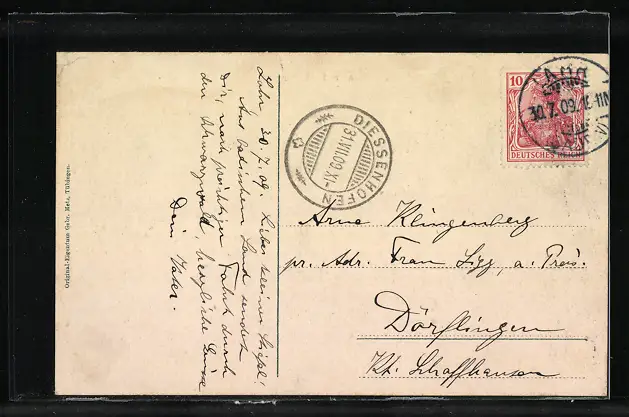 Lahr 30.7.09. Liebe kleine
Aus badischem Land sendet
Dir, nach prächtiger Fahrt durch
den Schwarzwald, herzliche Grüsse
Dein Vater.
Original-Eigentum Gebr. Metz, Tübingen.
DIESSENHOFEN
31.VII.09.XI-
10
DEUTSCHES REICH
30.7.09.
Arno Klingenberg
pr. Adr. Frau a. Preis.
Dörflingen
Kt. Schaffhausen